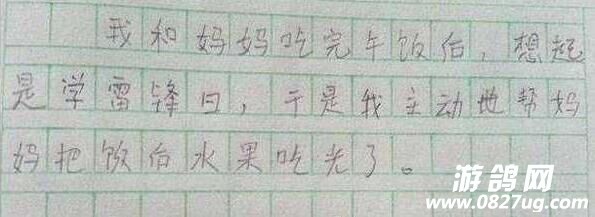 我和妈妈吃完午饭后，想起
是学雷锋日，于是我主动地帮妈
妈把饭后水果吃光了。
游鸽网
www.0827ug.com